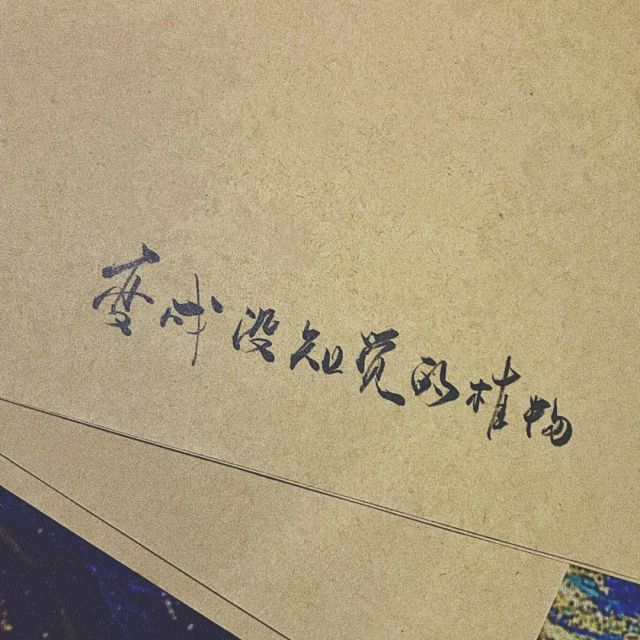 变成没知觉的植物